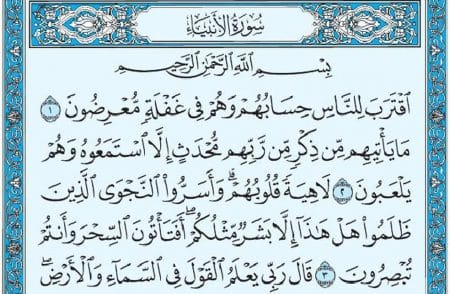 سُورَةُ الأَنبِيَاءِ
بِسْمِ اللَّهِ الرَّحْمَٰنِ الرَّحِيمِ
اقْتَرَبَ لِلنَّاسِ حِسَابُهُمْ وَهُمْ فِي غَفْلَةٍ مُّعْرِضُونَ ١
مَا يَأْتِيهِم مِّن ذِكْرٍ مِّن رَّبِّهِم مُّحْدَثٍ إِلَّا اسْتَمَعُوهُ وَهُمْ
يَلْعَبُونَ ٢ لَاهِيَةً قُلُوبُهُمْ ۗ وَأَسَرُّوا النَّجْوَى الَّذِينَ
ظَلَمُوا هَلْ هَٰذَا إِلَّا بَشَرٌ مِّثْلُكُمْ ۖ أَفَتَأْتُونَ السِّحْرَ وَأَنتُمْ
تُبْصِرُونَ ٣ قَالَ رَبِّي يَعْلَمُ الْقَوْلَ فِي السَّمَاءِ وَالْأَرْضِ ۖ